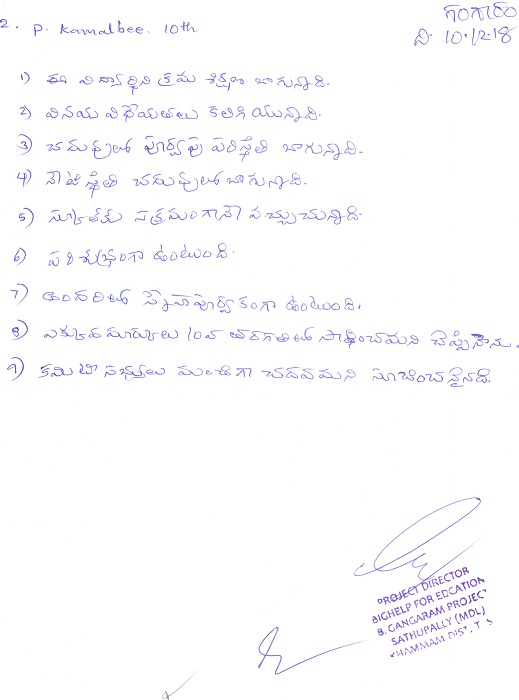 గంగారం
2. P. Kamalbee. 10th
ది. 10.12.18
1) ఈ విద్యార్థిని క్రమ శిక్షణ బాగున్నది.
2) వినయ విధేయతలు కలిగి యున్నది.
3) చదువులో పూర్వపు పరిస్థితి బాగున్నది.
4) చదువులో బాగున్నది.
5) స్కూల్‌కు సక్రమంగానే వచ్చుచున్నది.
6) పరిశుభ్రంగా ఉంటుంది.
7) అందరితో స్నేహపూర్వకంగా ఉంటుంది.
8) ఎక్కువ మార్కులు 10వ తరగతిలో సాధించమని చెప్పినాను.
9) కమిటీ సభ్యులు మంచిగా చదవమని సూచించనైనది.
PROJECT DIRECTOR
BIGHELP FOR EDCATION
B. GANGARAM PROJECT
SATHUPALLY (MDL)
KHAMMAM DIST, T